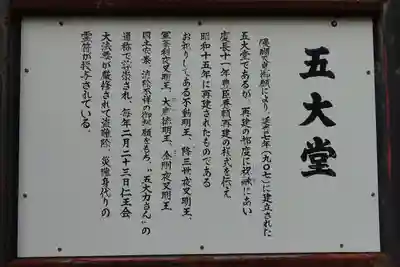 五大堂
醍醐天皇御願により、延喜七年(九〇七)に建立された
五大堂であるが、再建の都度に祝融にあい
慶長十一年豊臣秀頼再建の様式を伝え
昭和十五年に再建されたものである
お祀りしてある不動明王、降三世夜叉明王、
軍荼利夜叉明王、大威徳明王、金剛夜叉明王
国土安泰、消除不祥の御誓願をもち、"五大力さん"の
通称で崇され、毎年二月二十三日仁王会
大法要が厳修されて盗難除、災難身代りの
霊符が授与されている。